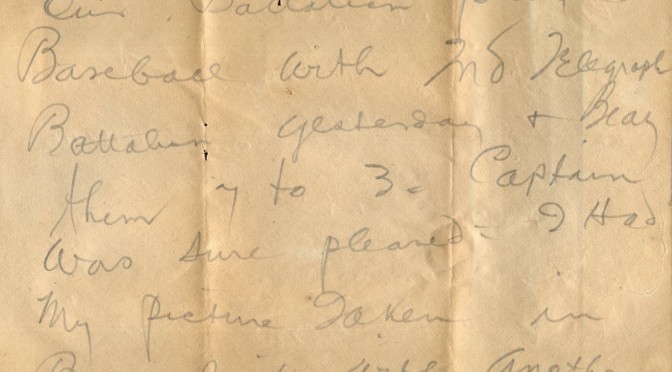 Our Battalion
Baseball with Md Telegraph
Battalion yesterday & Beat
them 7 to 3 = Captain
Was sure pleased = I Had
My picture Taken in
with Anothe